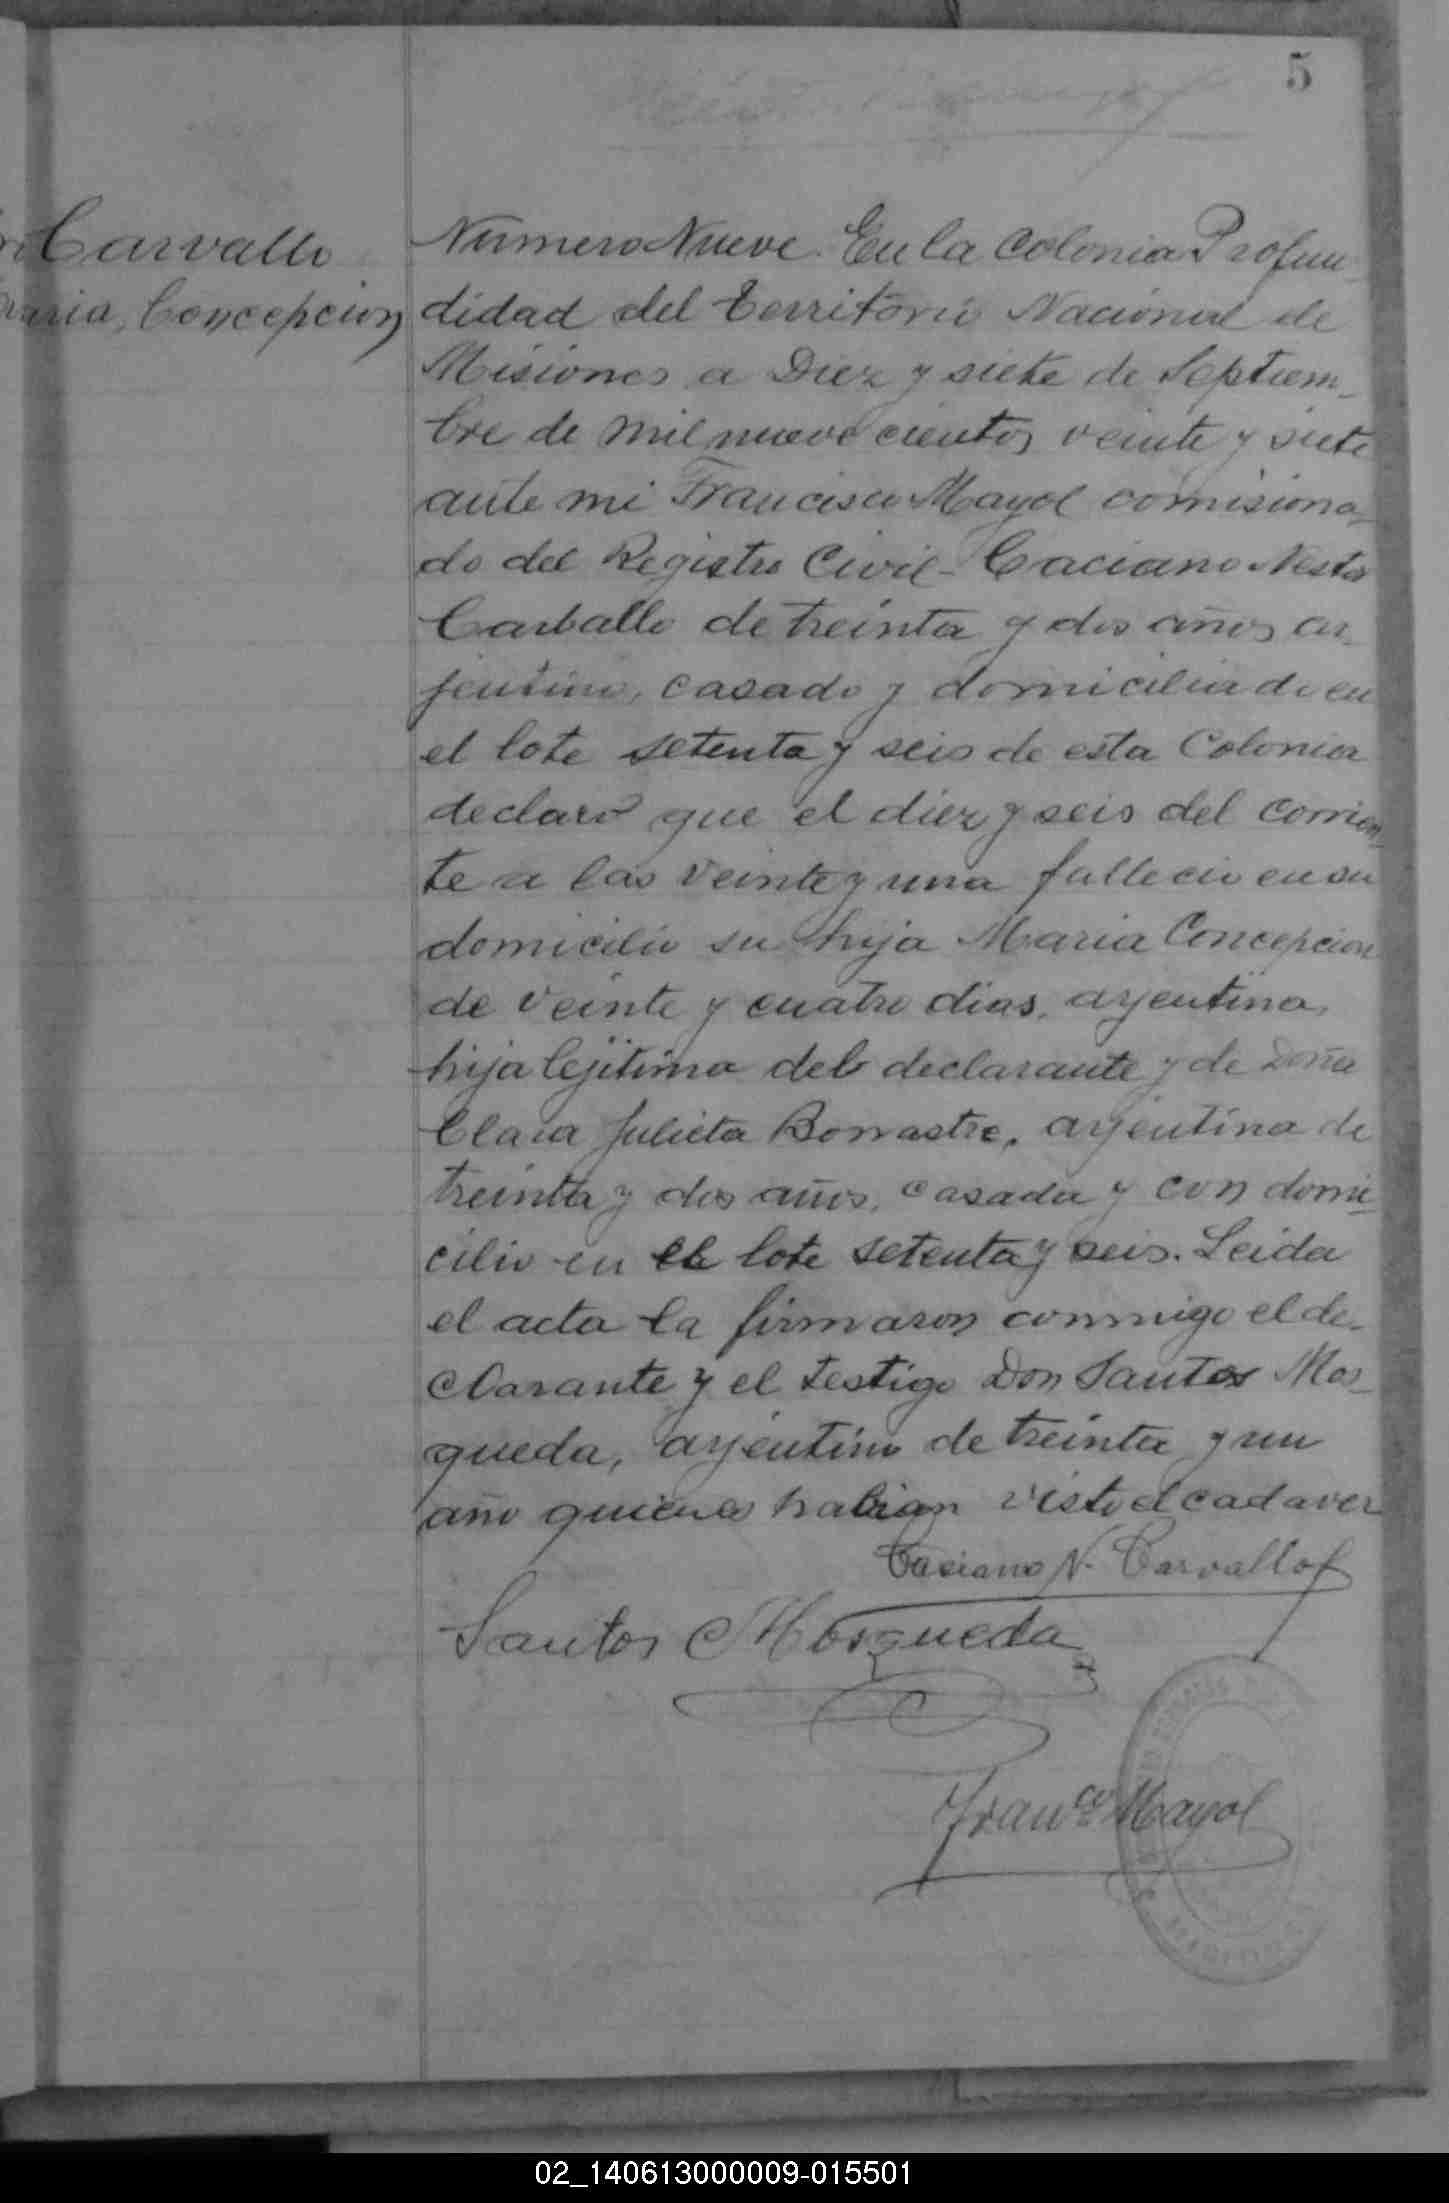 5
Carvallo
Maria, Concepcion
Numero Nueve. En la Colonia Profun-
didad del Territorio Nacional de
Misiones a Diez y siete de Septiem-
bre de mil nueve cientos veinte y siete
ante mi Francisco Mayol comisiona-
do del Registro Civil - Caciano Nestor
Carballo de treinta y dos años ar-
jentino, casado y domiciliado en
el lote setenta y seis de esta Colonia
declaró que el diez y seis del corrien-
te a las veinte y una fallecio en su
domicilio su hija Maria Concepcion
de veinte y cuatro dias, arjentina,
hija lejitima del declarante y de Doña
Clara Julieta Bonastre, arjentina de
treinta y dos años, casada y con domi-
cilio en el lote setenta y seis. Leida
el acta la firmaron conmigo el de-
clarante y el testigo Don Santos Mos-
queda, arjentino de treinta y un
año quienes habian visto el cadaver
Caciano N. Carvallo
Santos Mosqueda
Franco Mayol
02_140613000009-015501